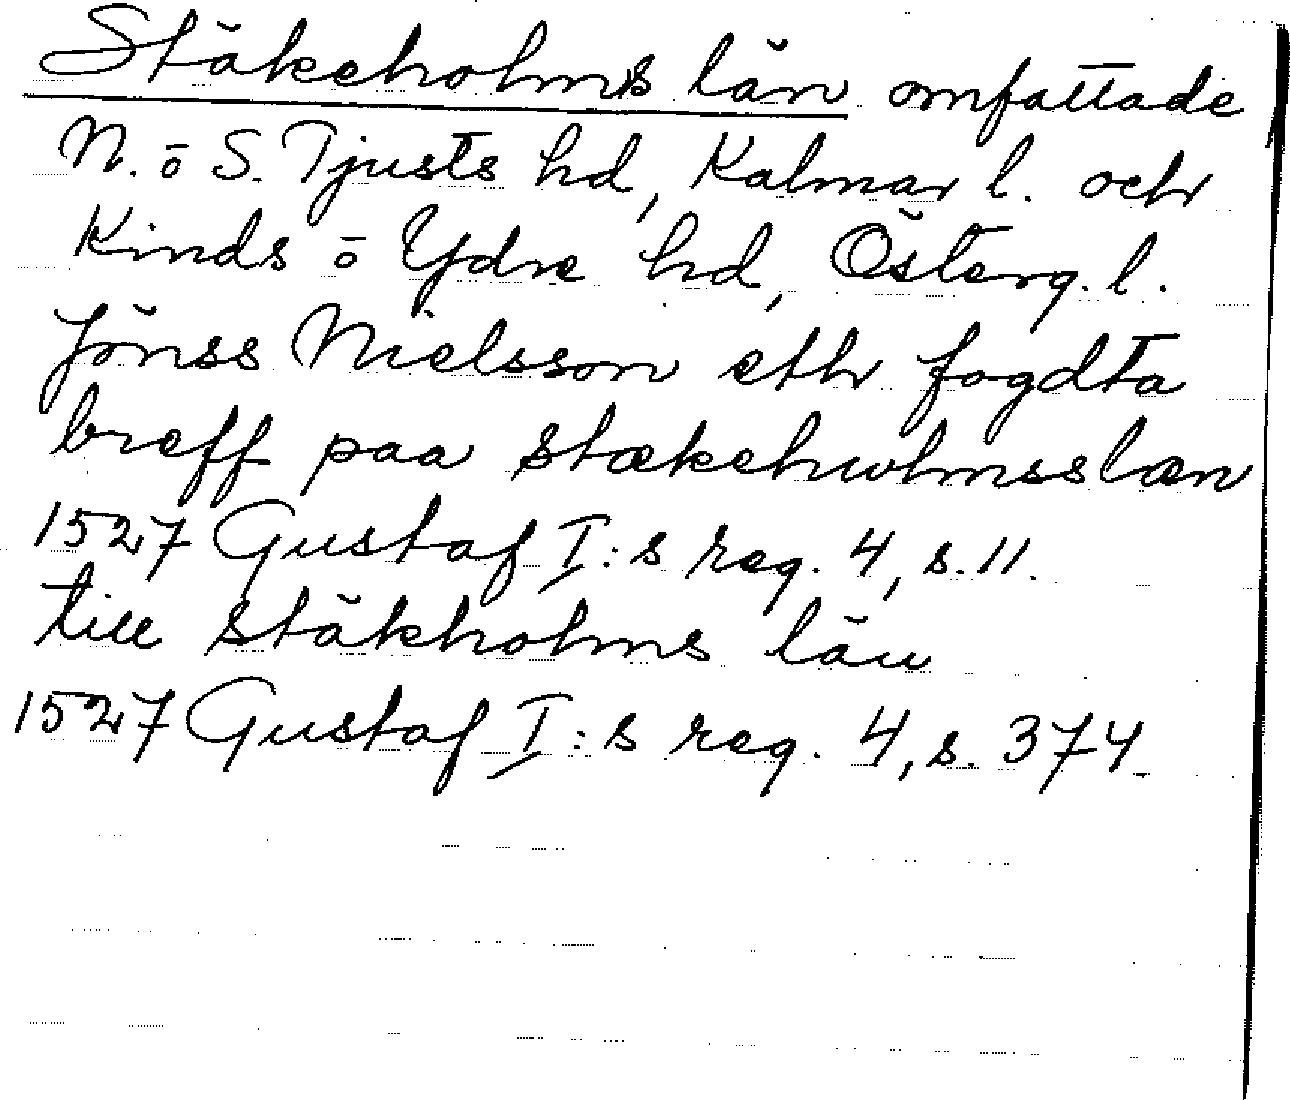 Stäkeholms län omfattade
N. o S. Tjusts hd, Kalmar l. och
Kinds o Ydre hd, Österg. l.
Jönss Nielsson eth fogdta
breff paa stækehwlmsslæn
1527 Gustaf I:s reg. 4, s. 11.
till stäkholms län
1527 Gustaf I:s reg. 4, s. 374